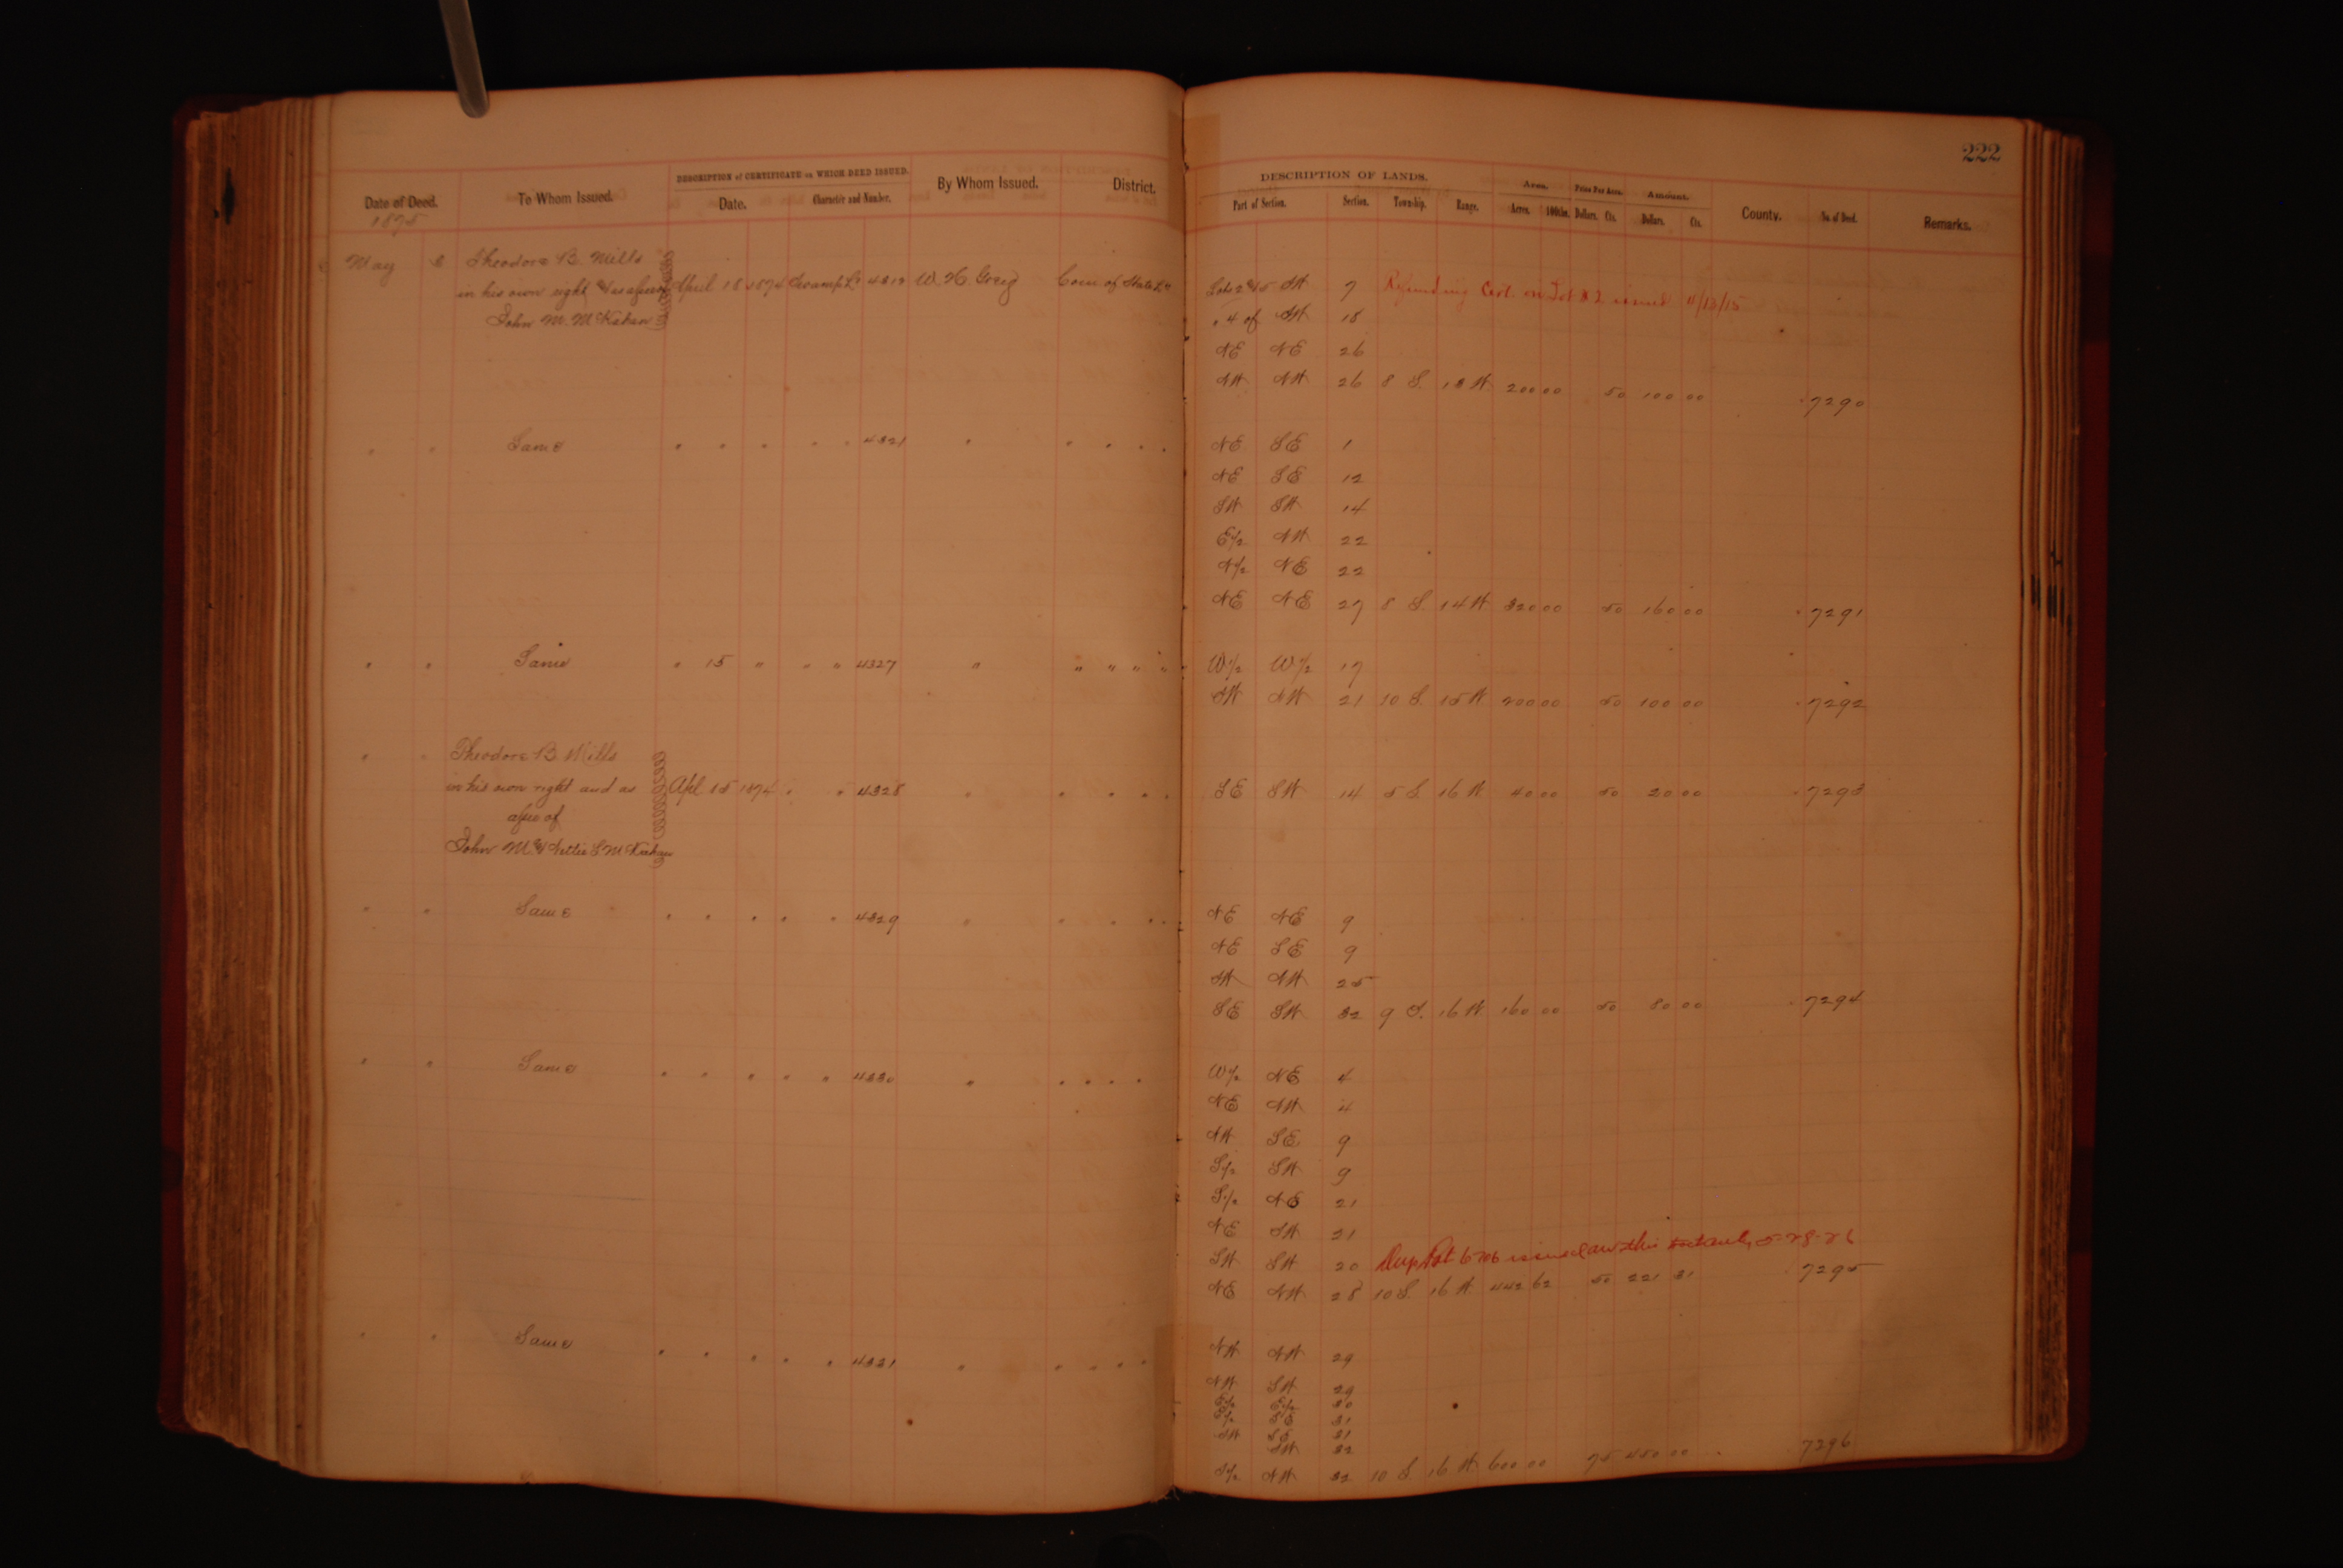 222
DESCRIPTION of CERTIFICATE on WHICH DEED ISSUED.
Date of Deed. To Whom Issued. Date. Character and Number. By Whom Issued. District.
1875
DESCRIPTION OF LANDS. Area. Price Per Acre. Amount.
Part of Section. Section. Township. Range. Acres. 100ths. Dollars. Cts. Dollars. Cts. County. No. of Deed. Remarks.
May Theodore B. Mills
in his own right & as
April 1874 Swamp W. H. Greig Com. of State Lds Lots 2 & 5 SW 7 Refunding Cert. on Lot issued 4/13/15
John M. McKahan
" 4 of SW 18
NE NE 26
NW NW 26 8 S. 13 W 200 00 50 100 00 7290
" " Same " " " " " 4321 " " " " " NE SE 1
NE SE 12
SW SW 14
E 1/2 NW 22
N 1/2 NE 22
NE NE 27 8 S. 14 W 320 00 50 160 00 7291
" " Same " 15 " " " 4327 " " " " " W 1/2 W 1/2 17
SW NW 21 10 S. 15 W 200 00 50 100 00 7292
" " Theodore B Mills
in his own right and as Apl 15 1874 " " 4328 " " " " " SE SW 14 5 S. 16 W 40 00 50 20 00 7293
of
John M. & Nettie S McKahan
" " Same " " " " " 4329 " " " " " NE NE 9
NE SE 9
SW NW 25
SE SW 32 9 S. 16 W 160 00 50 80 00 7294
" " Same " " " " " 4330 " " " " " W 1/2 NE 4
NE NW 4
NW SE 9
S 1/2 SW 9
S 1/2 NE 21
NE SW 21
SW SW 20 Dup issued 5-28-26
NE NW 28 10 S. 16 W 442 62 50 221 31 7295
" " Same " " " " " 4331 " " " " " NW NW 29
NW SW 29
E 1/2 E 1/2 30
E 1/2 SE 31
SW SE 31
SW 32
S 1/2 NW 32 10 S. 16 W 600 00 75 450 00 7296